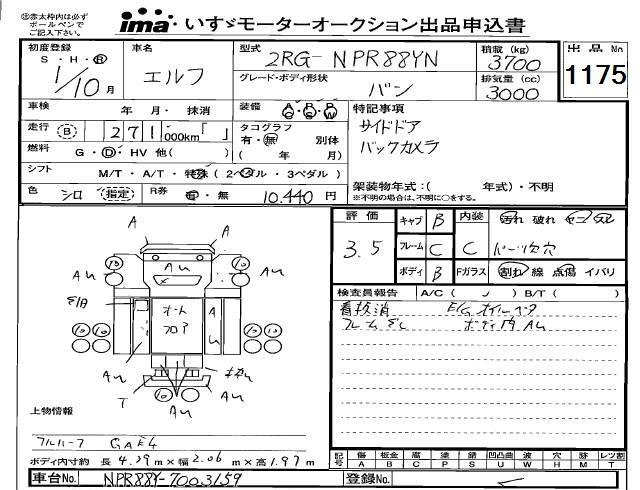 ㊟赤太枠内は必ず
ボールペンで
ご記入下さい。
ima・いすゞモーターオークション出品申込書
初度登録
S・H・R
1/10月
車名
エルフ
型式
2RG-NPR88YN
グレード・ボディ形状
バン
積載(kg)
3700
排気量(cc)
3000
出品No
1175
車検 年 月・抹消
走行 B 271,000km「 」
燃料 G・D・HV 他( )
シフト M/T・A/T・特殊(2ペダル・3ペダル)
色 シロ 指定 R券 有・無 10,440円
装備 AC PS PW
タコグラフ
有・無 別体
( 年 月)
特記事項
サイドドア
バックカメラ
架装物年式:( 年式)・不明
※不明の場合は、不明に○をする。
評価
3.5
キャブ B
フレーム C
ボディ B
内装
C
Fガラス
汚れ 破れ
パーツ欠穴
割れ 線 点傷 イバリ
検査員報告 A/C( ) B/T( )
看板消 E/Gオイルモレ
フレームサビ ボディ内AU
A
A
AU
AU
AU
オート
フロア
A
AU
AU
AU
T
AU
上物情報
フルハーフ GAE4
ボディ内寸約 長4.39m×幅2.06m×高1.97m
記号
傷 板金 腐 塗 錆 凹凸曲 波 穴 跡 レツ割
A B C P S U W H M T
車台No. NPR88Y-7003159
登録No.